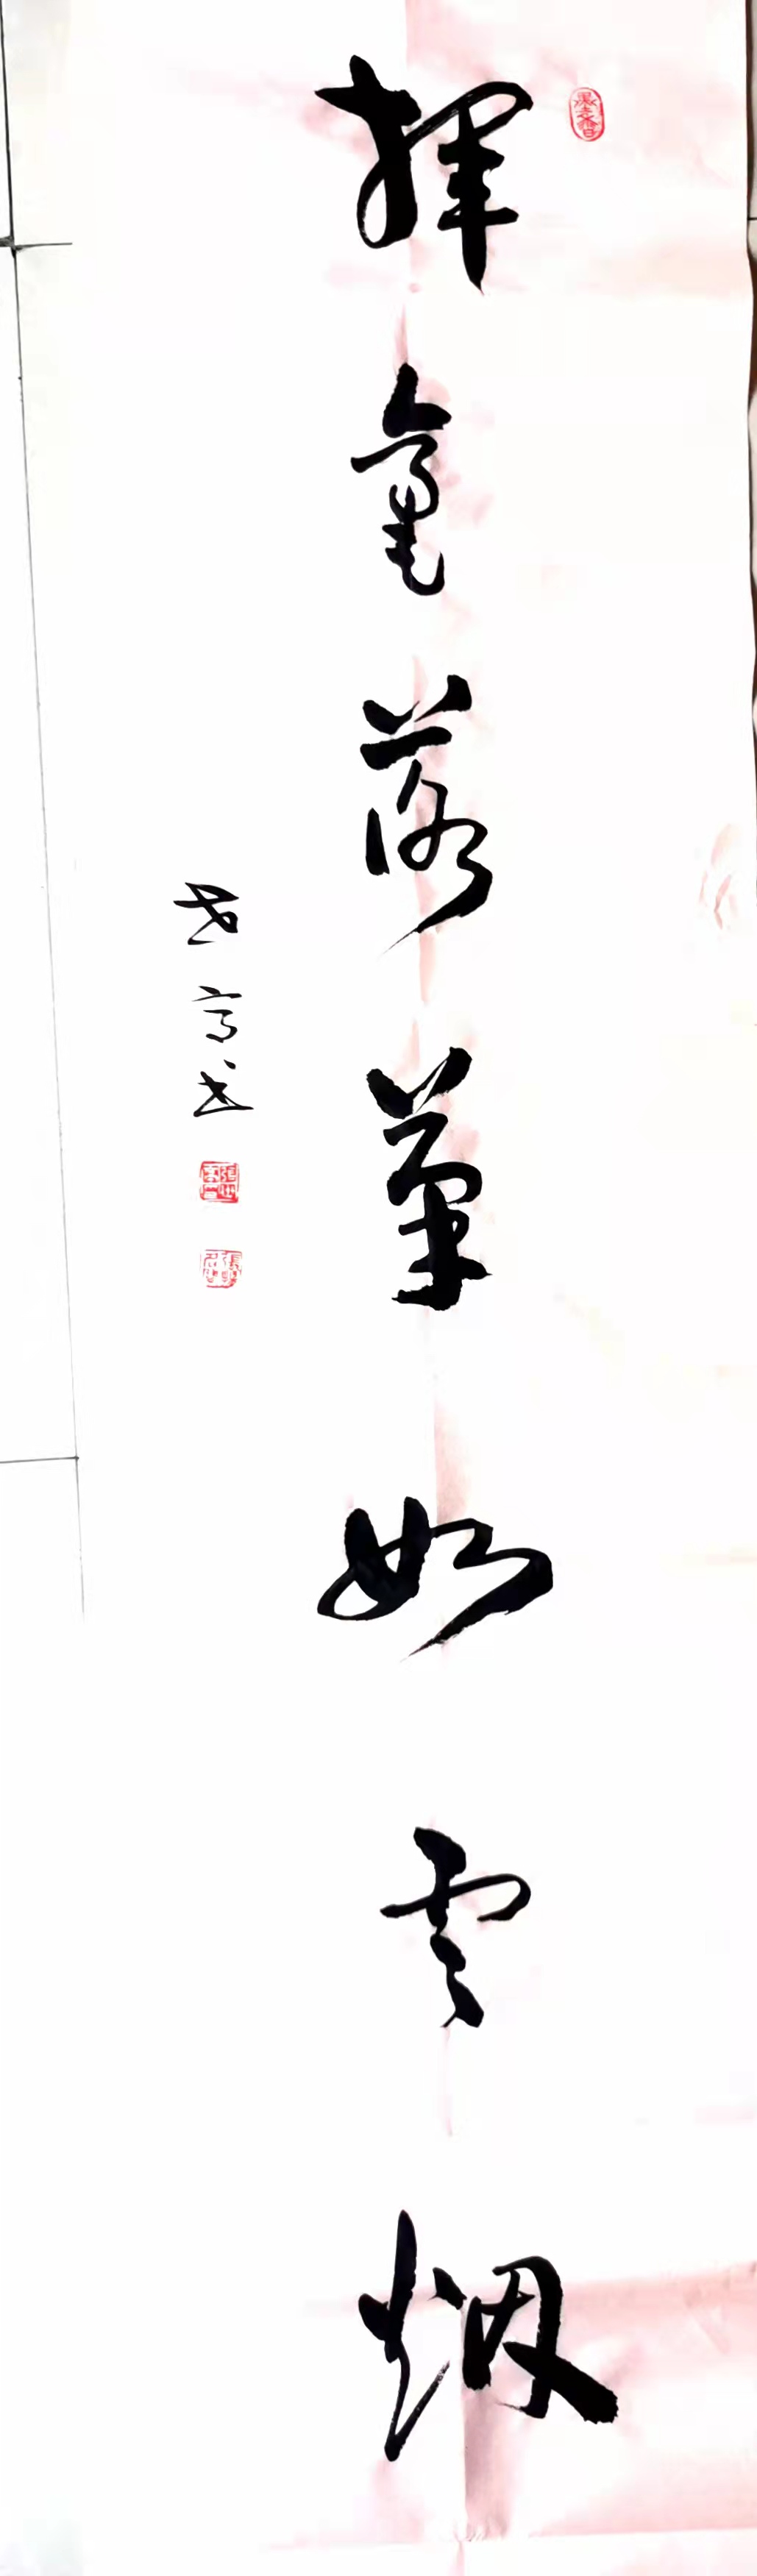 揮毫落筆如雲烟